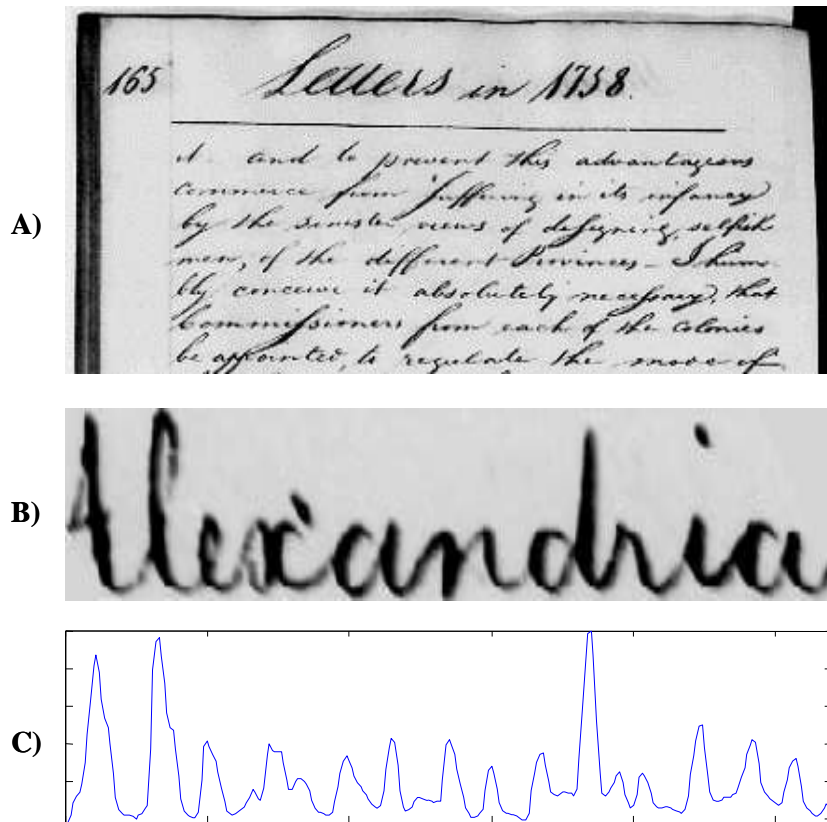 A)
165 Letters in 1758.
it and to prevent this advantageous
commerce from suffering in its infancy
by the sinister views of designing, selfish
men, of the different Provinces - I hum
bly conceive it absolutely necessary, that
Commissioners from each of the Colonies
be appointed, to regulate the mode of
B)
Alexandria
C)